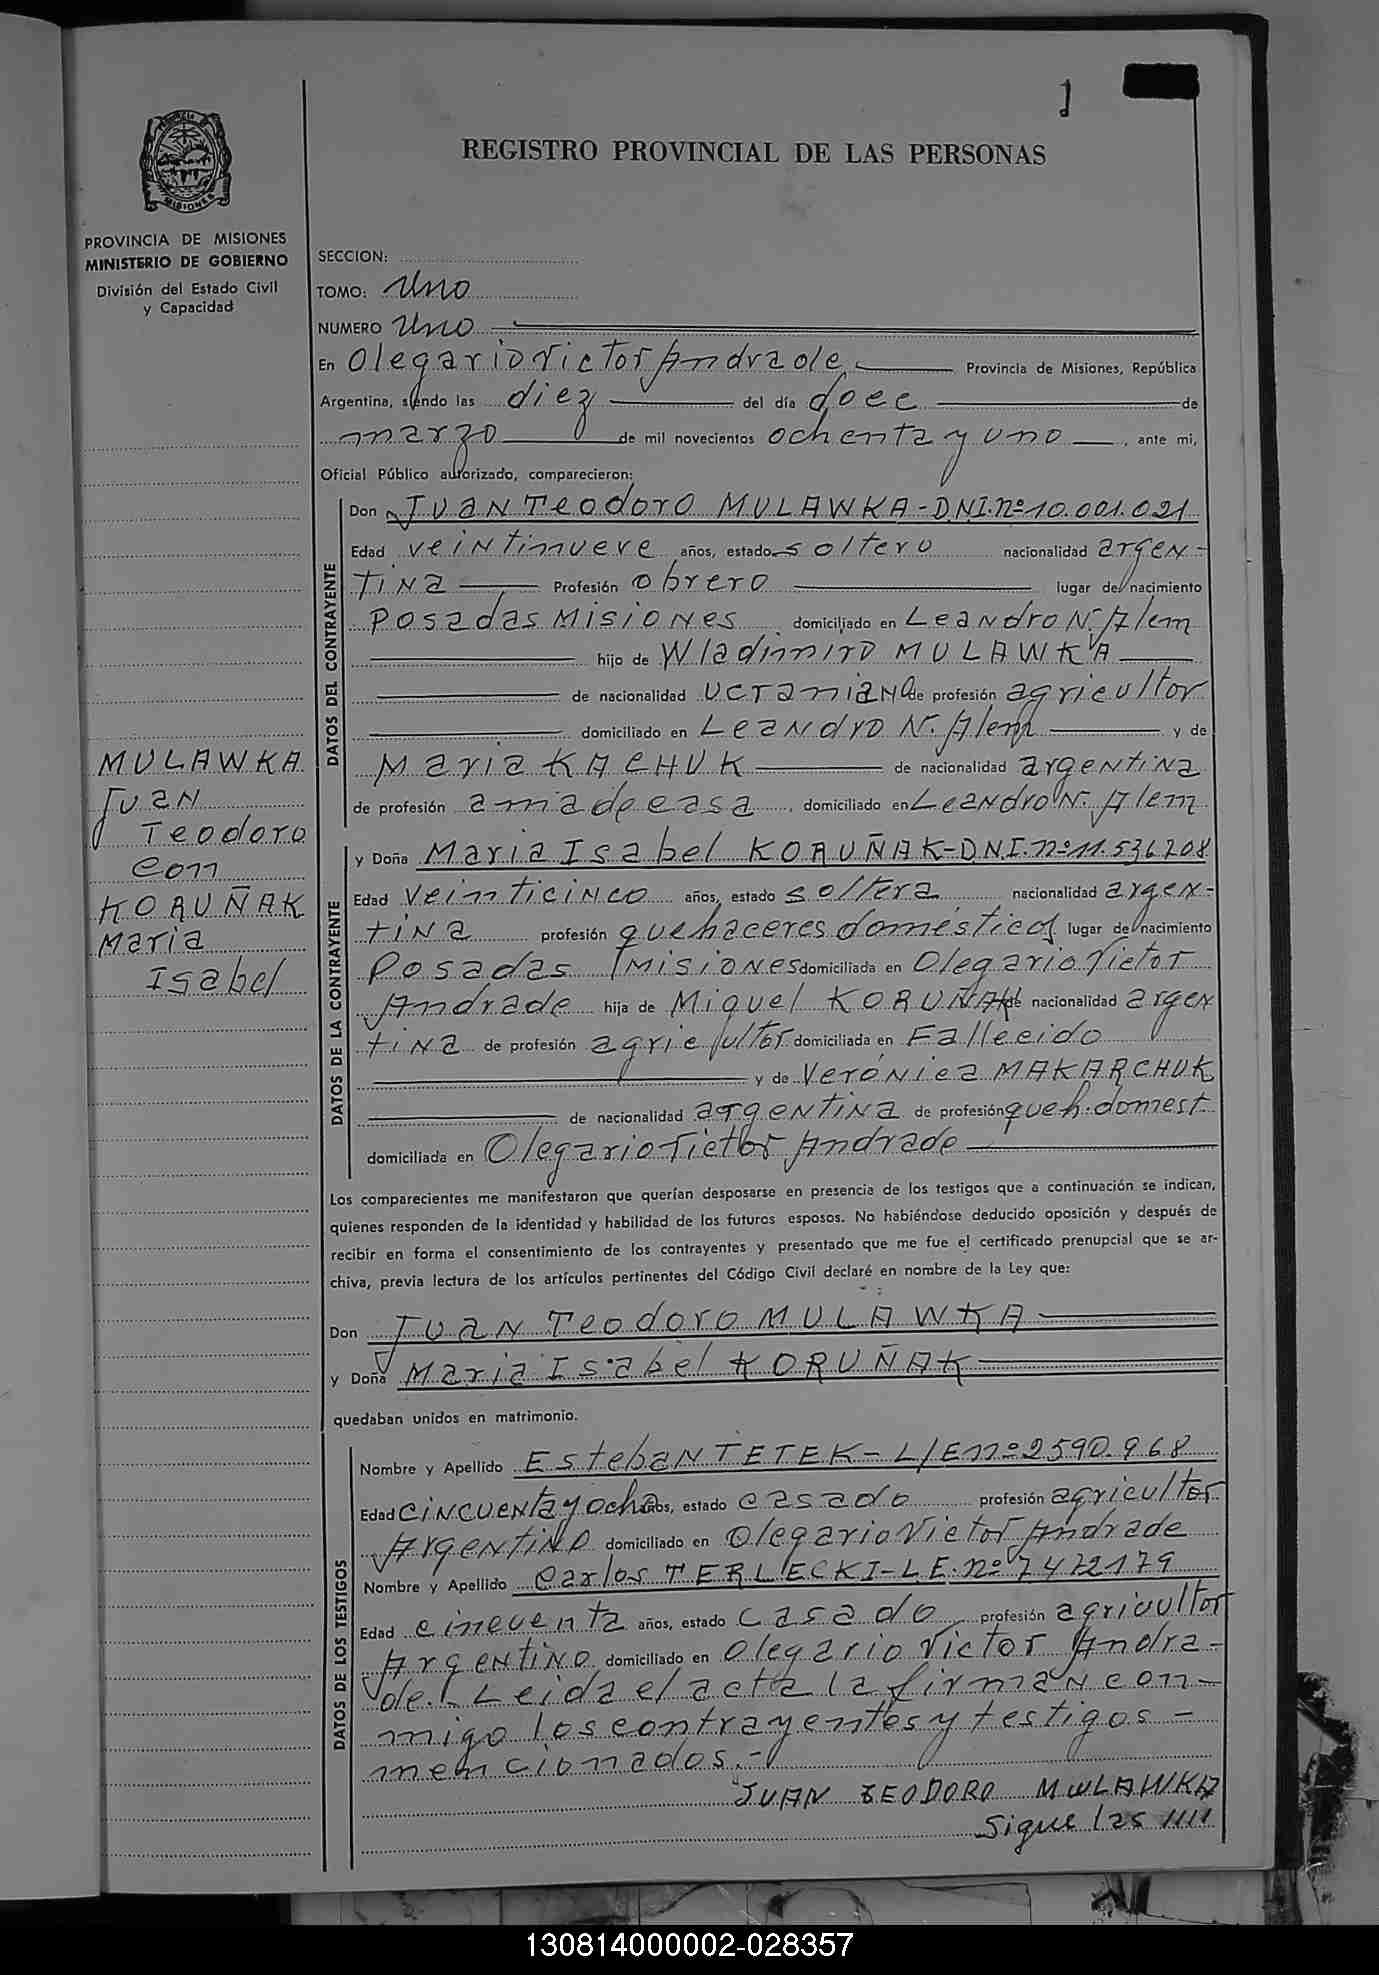 1
REGISTRO PROVINCIAL DE LAS PERSONAS
PROVINCIA DE MISIONES
MINISTERIO DE GOBIERNO
División del Estado Civil
y Capacidad
MULAWKA
Juan
Teodoro
con
KORUÑAK
Maria
Isabel
SECCION:
TOMO: Uno
NUMERO Uno
En Olegario Victor Andrade Provincia de Misiones, República
Argentina, siendo las diez del día doce de
marzo de mil novecientos ochenta y uno, ante mi,
Oficial Público autorizado, comparecieron:
DATOS DEL CONTRAYENTE
Don Juan Teodoro MULAWKA-D.N.I.nº10.001.021
Edad veintinueve años, estado soltero nacionalidad argen-
tina Profesión obrero lugar de nacimiento
Posadas Misiones domiciliado en Leandro N. Alem
hijo de Wladimiro MULAWKA
de nacionalidad ucraniana de profesión agricultor
domiciliado en Leandro N. Alem y de
Maria KACHUK de nacionalidad argentina
de profesión ama de casa, domiciliado en Leandro N. Alem
DATOS DE LA CONTRAYENTE
y Doña Maria Isabel KORUÑAK-D.N.I.nº11.536.208
Edad veinticinco años, estado soltera nacionalidad argen-
tina profesión quehaceres domésticos lugar de nacimiento
Posadas Misiones domiciliada en Olegario Victor
Andrade hija de Miguel KORUÑAK de nacionalidad argen
tina de profesión agricultor domiciliada en Fallecido
y de Verónica MAKARCHUK
de nacionalidad argentina de profesión queh.domest.
domiciliada en Olegario Victor Andrade
Los comparecientes me manifestaron que querían desposarse en presencia de los testigos que a continuación se indican,
quienes responden de la identidad y habilidad de los futuros esposos. No habiéndose deducido oposición y después de
recibir en forma el consentimiento de los contrayentes y presentado que me fue el certificado prenupcial que se ar-
chiva, previa lectura de los artículos pertinentes del Código Civil declaré en nombre de la Ley que:
Don Juan Teodoro MULAWKA
y Doña Maria Isabel KORUÑAK
quedaban unidos en matrimonio.
DATOS DE LOS TESTIGOS
Nombre y Apellido Esteban TETEK-L/E nº2590.968
Edad cincuenta y ocho años, estado casado profesión agricultor
Argentino domiciliado en Olegario Victor Andrade
Nombre y Apellido Carlos TERLECKI-L E.nº7472179
Edad cincuenta años, estado casado profesión agricultor
Argentino domiciliado en Olegario Victor Andra-
de. Leida el acta la firman con-
migo los contrayentes y testigos-
mencionados.-
JUAN TEODORO MULAWKA
Sigue las ////
130814000002-028357